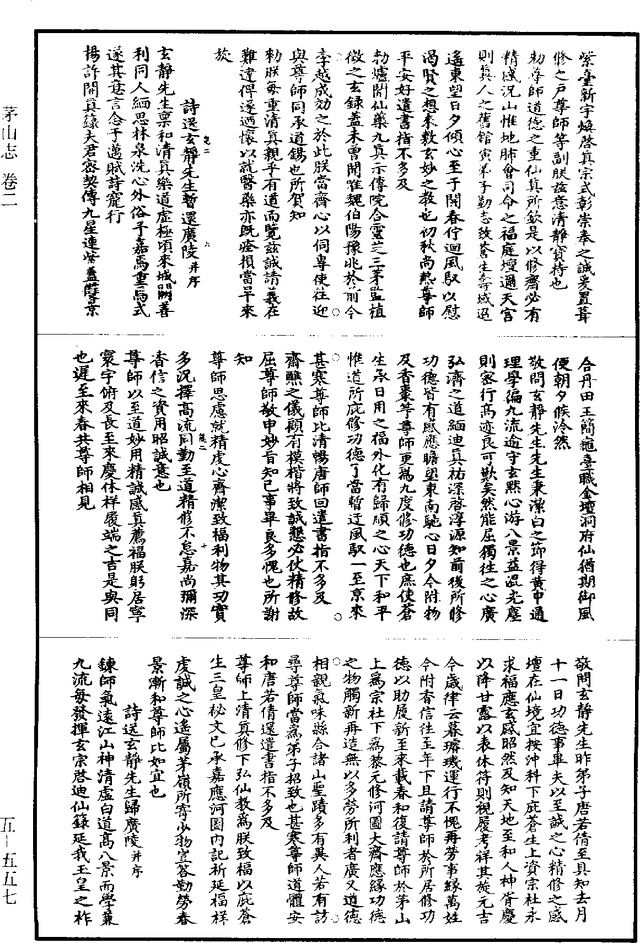 紫臺新宇煥啓真宗式彰崇奉之誠爰置葺
修之戶尊師等副朕茲意清靜寶持也
勑尊師道德之重仙真所欽是以修齋必有
精感況山惟地肺會司命之福庭壇邇天宮
則真人之舊館寅弟子勤志致蒼生壽域迢
遙東望日夕傾心至于開春佇迴風馭以慰
渴賢之想來數玄妙之教也初秋尚熱尊師
平安好遣書指不多及
勑爐開仙藥九真示傳院合靈芝三茅監植
徵之玄錄蓋未曾聞惟魏伯陽豫兆於前今
李越成効之於此朕當齋心以伺專使往迎
與尊師同承道錫也所賀知
勑朕每重清真親乎有道而覽茲誠請義在
難違俾遂迺懷以就醫藥亦既瘳損當早來
旋
詩送玄靜先生暫還廣陵并序
玄靜先生稟和清真樂道虛極頃來城闕善
利同人緬思林泉洗心外俗予嘉焉重焉式
遂其意言念于邁賦詩寵行
楊許開真籙夫君密契傳九星連紫蓋雙景
合丹田王簡龜臺職金壇洞府仙猶期御風
便朝夕候泠然
敬問玄靜先生先生秉潔白之節得黃中通
理學徧九流逾守玄默心游八景益混光塵
則密行高迹良可歎矣然能屈獨往之心廣
弘濟之道緬迪真祐深啓淳源知前後所修
功德皆有感應瞻望東南馳心日夕今附物
及香棗等尊師更為九度修功德也庶使蒼
生承日用之福外化有歸順之心天下和平
惟道所庇修功德了當暫迂風馭一至京來
甚寒尊師比清暢唐師回遣書指不多及
齋醮之儀顧有模楷將致誠懇必仗精修故
屈尊師敬申妙旨知已事畢良多愧也所謝
知
尊師思慮就精虔心齋潔致福利物其功實
多況擇高流同勤至道精修不怠嘉尚彌深
香信之資用昭誠意也
尊師以至道妙用精誠感真薦福朕躬居寧
寰宇俯及長至來慶休祥履端之吉是與同
也遲至來春共尊師相見
敬問玄靜先生昨弟子唐若倩至具知去月
十一日功德事畢夫以至誠之心精修之感
壇在仙境宜按沖科下庇蒼生上資宗社永
求福應玄感昭然及知天地至和人神胥慶
以降甘露以表休符則視履考祥其旋元吉
今歲律云暮璿璣運行不愧再勞事緣萬姓
今附香信往至年下且請尊師於所居修功
德以助履新至來載春和復請尊師於茅山
上為宗社下為黎元修河圖大齋應緣功德
之物觸新再造無以多勞所利者廣又道德
相親氣味縣合諸山聖蹟多有異人若有訪
尋尊師當為弟子招致也甚寒尊師道體安
和唐若倩還遣書指不多及
尊師上清真修下弘仙教為朕致福以庇蒼
生三皇秘文已承嘉應河圖內記祈延福祥
虔誠之心遙屬茅嶺所寄少物宜答勤勞春
景漸和尊師比如宜也
詩送玄靜先生歸廣陵并序
鍊師氣遠江山神清虛白道高八景而學兼
九流每發揮玄宗啓迪仙籙延我玉皇之祚
茅山志 卷二
五－五五七